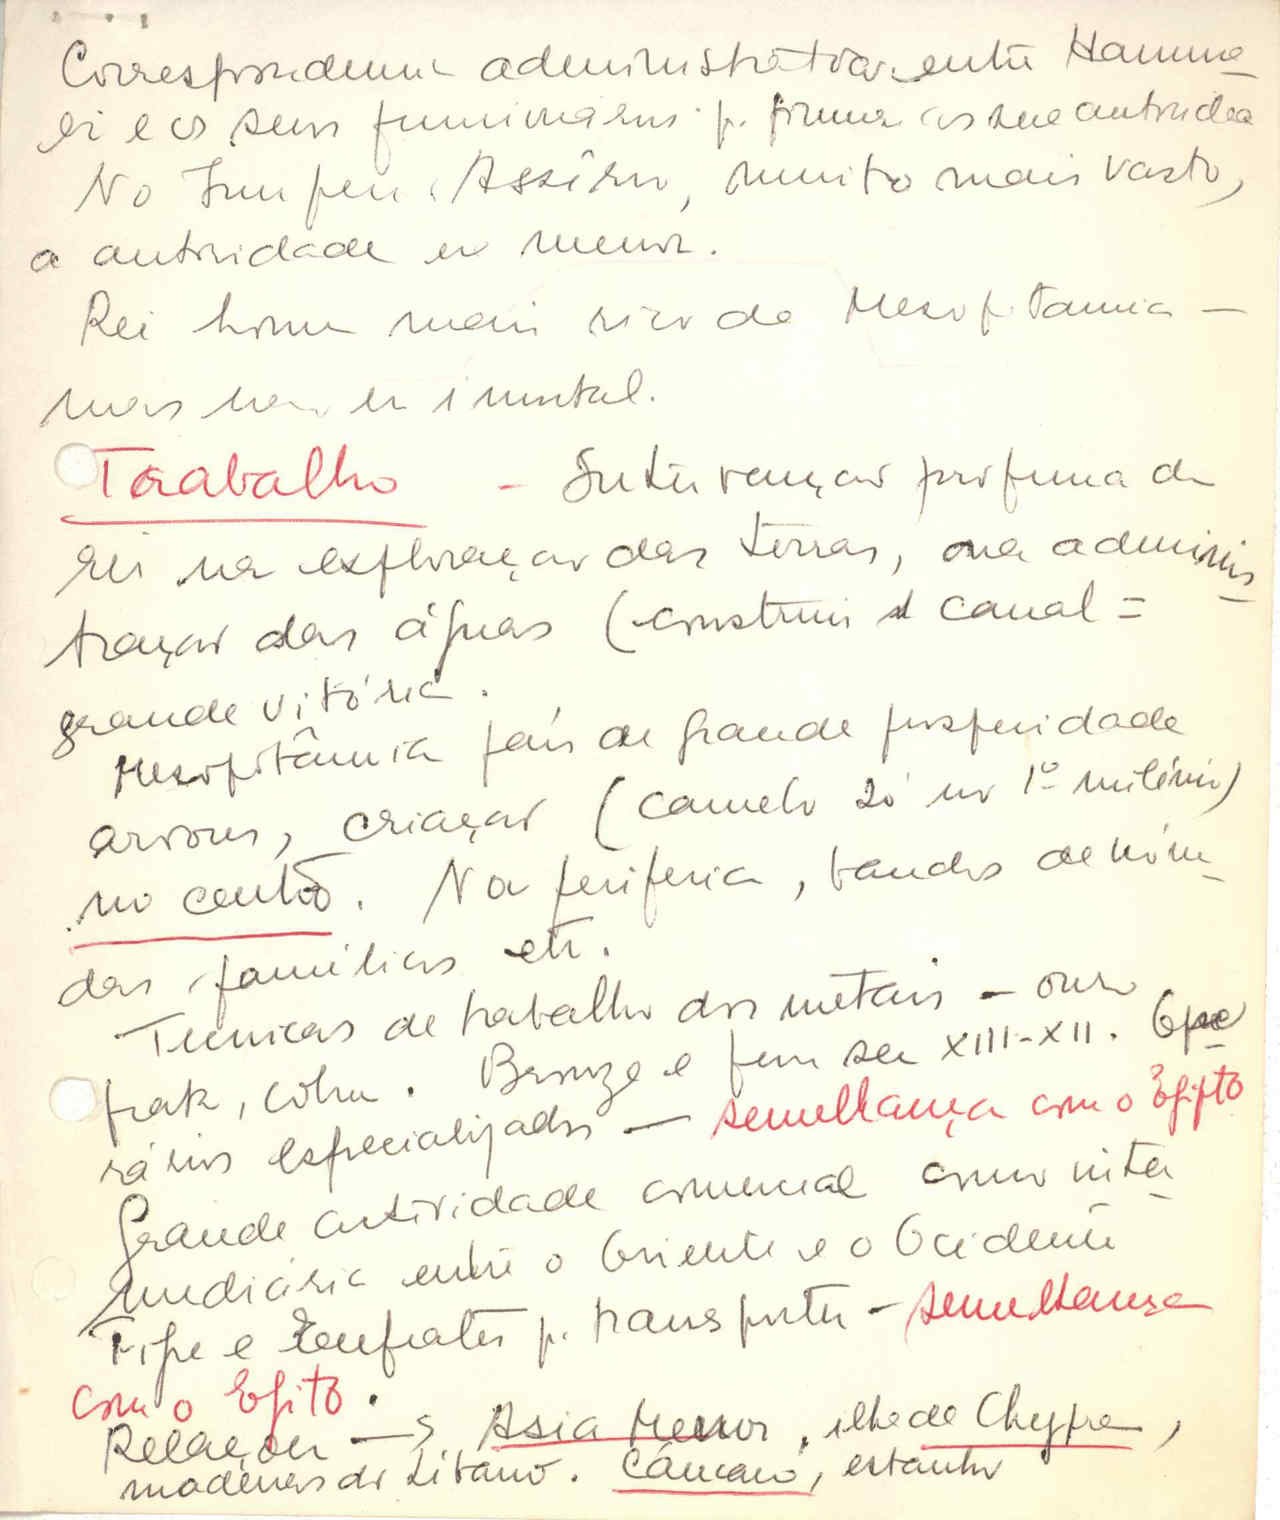 Correspondencia administrativa entre Hammu-
bi e os seus funcionários p. firmar a sua autoridade
No Império Assírio, muito mais vasto,
a autoridade era menor.
Rei homem mais rico da Mesopotamia —
mas não era imortal.
Trabalho - Intervenção profunda do
rei na exploração das terras, na adminis-
tração das águas (construir 1 canal =
grande vitória.
Mesopotâmia país de grande prosperidade
arvores, criação (camelo só no 1º milénio)
no centro. Na periferia, bandos de nóma-
das, familias etc.
Tecnicas de trabalho dos metais - ouro
prata, cobre. Bronze e ferro sec XIII-XII. Ope-
rários especializados — semelhança com o Egipto
Grande actividade comercial como inter-
mediária entre o Oriente e o Ocidente
Tigre e Eufrates p. transporte - semelhança
com o Egito.
Relações → Asia Menor, ilha de Chypre,
madeiras do Libano. Câucaso, estanho